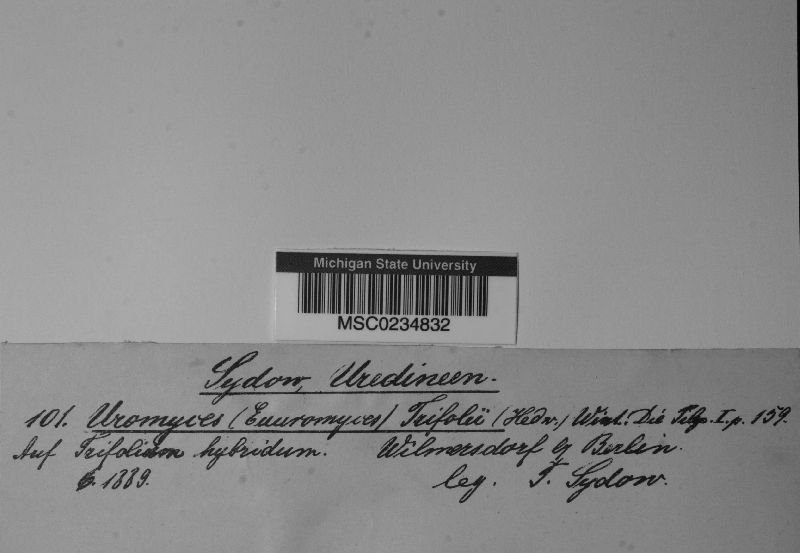 Michigan State University
MSC0234832
Sydow, Uredineen.
101. Uromyces (Euuromyces) Trifolii (Hedw.) Wint. Die Pilze. I, p. 159.
Auf Trifolium hybridum. Wilmersdorf b/ Berlin.
6. 1889. leg. P. Sydow.